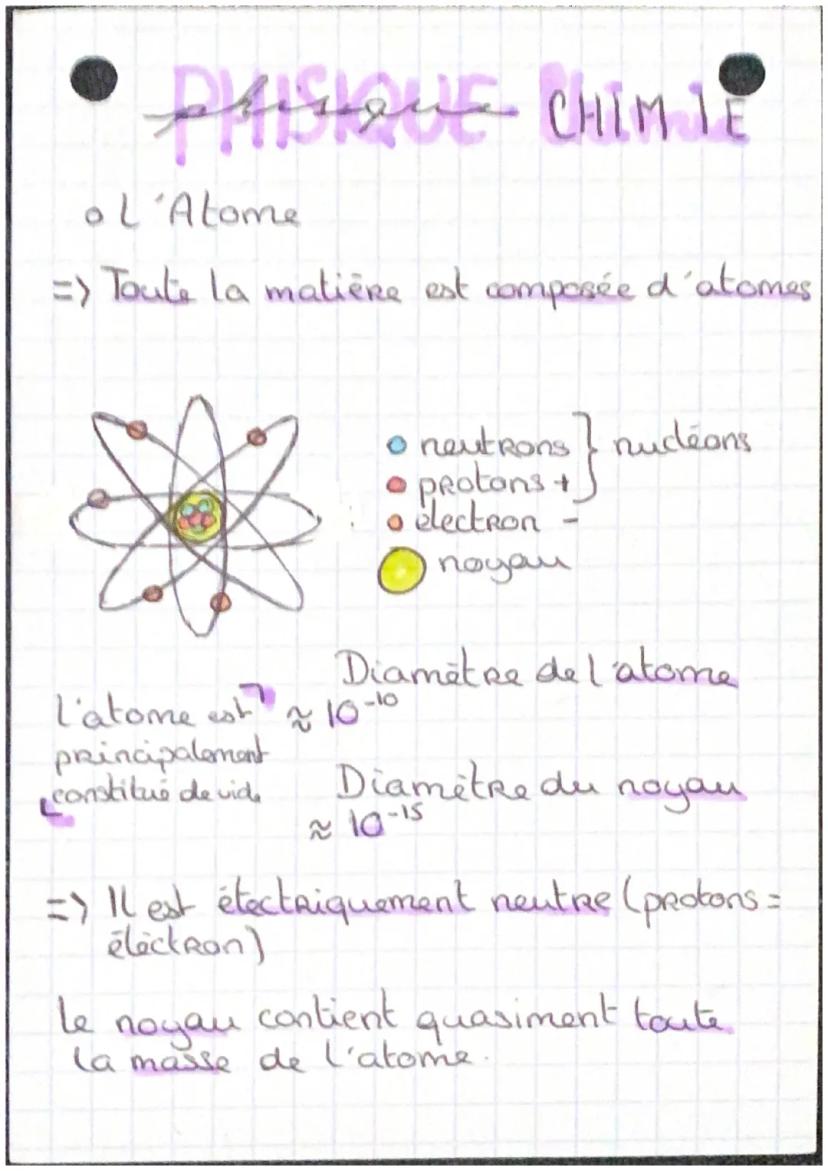 PHISIQUE CHIMIE
o L'Atome
=> Toute la matière est composée d'atomes
neutrons } nucléons
protons +
électron -
noyau
Diamètre de l'atome
≈ 10⁻¹⁰
l'atome est
principalement
constitué de vide
Diamètre du noyau
≈ 10⁻¹⁵
=> Il est électriquement neutre (protons =
électron)
le noyau contient quasiment toute
la masse de l'atome.